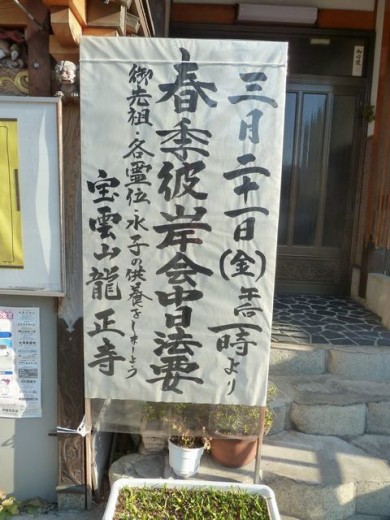 三月二十一日(金)午后一時より
春季彼岸会中日法要
御先祖・各霊位・水子の供養をしましょう
宝雲山龍正寺